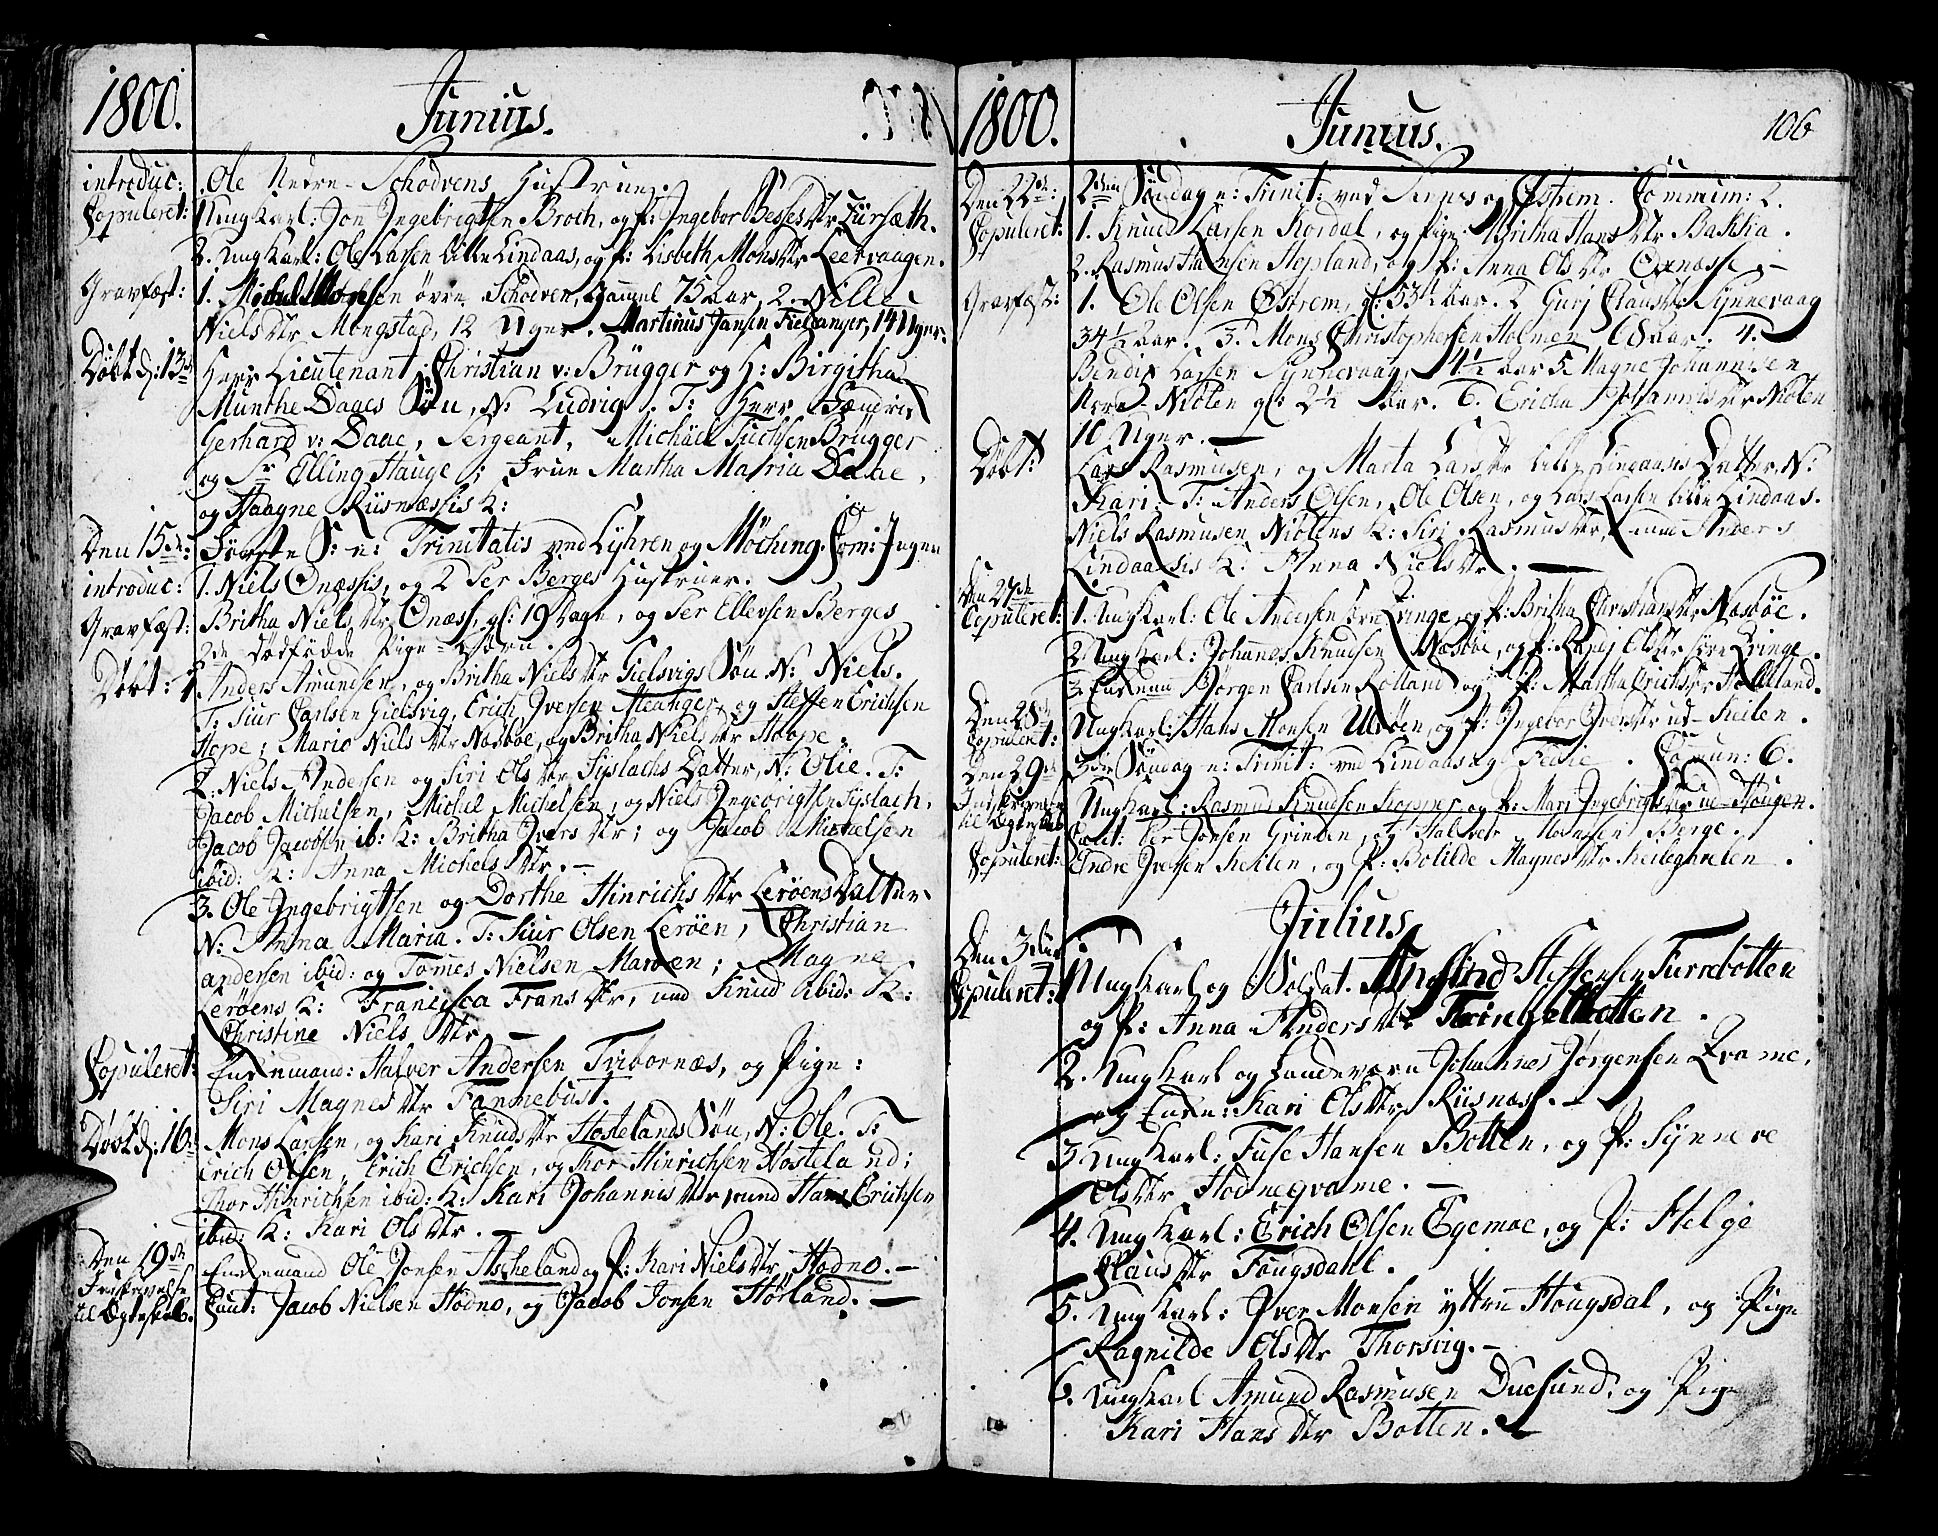 1800. Junius.
introduc: Ole Nedre-Schodvens Hustrue.
Copuleret: 1. Ungkarl: Jon Ingebrigtsen Broch, og P: Ingebor BessesDtr Fursæth.
2. Ungkarl: Ole Larsen lille Lindaas, og P: Lisbeth MonsDtr Leervaagen.
Gravfæst: 1. Michel Monsen øvre Schodven, gammel 75 aar, 2. Nille
NielsDtr Mongstad, 12 Uger. Martinus Jansen Fieldanger, 14 Uger.
Døbt d: 13de Herr Lieutenant Christian v: Brügger og H: Birgitha
Munthe Daaes Søn, N: Ludvig. T: Herr
Gerhard v: Daae, Sergeant, Michäel Brügger
og Sr Elling Hauge; Frue Martha Maria Daae,
og Haagne Riisnæssis K:
Den 15de: Første S: e: Trinitatis ved Lyhren og Møching. Com: Ingen
introduc: 1. Niels Onæssis, og 2 Per Berges Hustruer.
Gravfæst: Britha NielsDtr Onæss, gl: 19 Dage, og Per Ellersen Berges
dødfødde Pige-Børn.
Døbt: 1. Anders Amundsen, og Britha NielsDtr Gielsvigs Søn N: Niels.
T: Siur Carlsen Gielsvig, Erich Iversen, og Steffen Erichsen
Hope; Mario NielsDtr Næsbøe, og Britha NielsDtr Hope.
2. Niels Andersen og Siri OlsDtr Sÿslachs Datter, N: Olie. T:
Jacob Michelsen, Michel Michelsen, og Niels Ingebrigtsen Sÿslach,
Jacob Jacobsen ib: K: Britha IversDtr; og Jacob Michelsen
ibid: K: Anna MichelsDtr. -
3. Ole Ingebrigtsen og Dorthe HinrichsDtr Lerøens Datter
N: Anna Maria. T: Siur Olsen Lerøen, Christian
Andersen ibid: og Tomes Nielsen Marøen; Magne
Lerøens K: Francisca FransDtr, Knud ibid: K:
Christine NielsDtr -
Copuleret: Enkemand: Halver Andersen Tvibornæs, og Pige:
Siri MagnesDtr Fammebust.
Døbt d: 16 Mons Larsen, og Kari KnudsDtr Hostelands Søn, N: Ole. T:
Erich Olsen, Erich Erichsen, og Thor Hinrichsen Hosteland;
Thor Hinrichsen ibid: K: Kari JohannisDtr Hans Erichsen
ibid: K: Kari OlsDtr. -
Den 19de Enkemand Ole Jonsen Ascheland og P: Kari NielsDtr Hodno. -
til Ægteskab. Caut: Jacob Nielsen Hodno, og Jacob Jonsen Hørland. -
1800. Junius. 106
Den 22de: 2den Søndag e: Trinit: ved og Østrem. Commun: 2.
Copuleret: 1. Knud Larsen Kordal, og Pige Britha HansDtr Bakka.
2. Rasmus Hansen Hopland, og P: Anna OlsDtr -
Gravfæst: 1. Ole Olsen Østrem, gl: 53½ aar. 2 Gurj ClausDtr Synnevaag
34½ aar. 3. Mons Christophersen Holmen, aar. 4.
Bendix Larsen Synnevaag, 4½ aar 5. Magne Johannisen
Niolen gl: 2½ Aar. 6. Ericha JohannisDtr Niolen
10 Uger. -
Døbt: Lars Rasmusen, og Marta LarsDtr lille Lindaasis Datter, N:
Kari. T: Anders Olsen, Ole Olsen, og Lars Larsen lille Lindaas.
Niels Rasmusen Niolens K: Siri RasmusDtr, Anders
Lindaasis K: Anna NielsDtr. -
Den 27de
Copuleret: 1. Ungkarl: Ole Andersen Qvinge, og P: Britha ChristiansDtr Næsbøe.
2 Ungkarl: Johannes Knudsen Næsbøe, og P: Randj OlsDtr Qvinge.
3. Enkemand Børgen Carlsen Kolland og P: Martha ErichsDtr
Den 28de
Copuleret: Ungkarl: Hans Monsen Ulvøen, og P: Ingebor IversDtr ud-Keilen.
Den 29de 3die Søndag e: Trinit: ved Lindaas og Fedie. Commun: 6.
Ungkarl: Rasmus Knudsen, og P: Mari IngebrigtsDtr ud-Hougen.
til Ægteskab Caut: Per Jonsen Grinden, og Halver Berge.
Copuleret: Endre Iversen Keilen, og P: Botilde MagnesDtr Keilegavlen.
Julius,
Den 3die
Copuleret: 1. Ungkarl og Soldat. Ansfind Steffensen Turrebotten
og P: Anna AndersDtr
2. Ungkarl og Landeværn Johannes Jørgensen Qvame,
og Enke: Kari OlsDtr Riisnæs. -
3 Ungkarl: Fuse Hansen Botten, og P: Synneve
OlsDtr Hodneqvame. -
4. Ungkarl: Erich Olsen Egemoe, og P: Helge
ClausDtr Fougsdahl.
5. Ungkarl: Iver Monsen yttre Hougsdal, og Pige
Ragnilde OlsDtr Thorsvig. -
6. Ungkarl Amund Rasmusen Duesund, og Pige
Kari HansDtr Botten. -